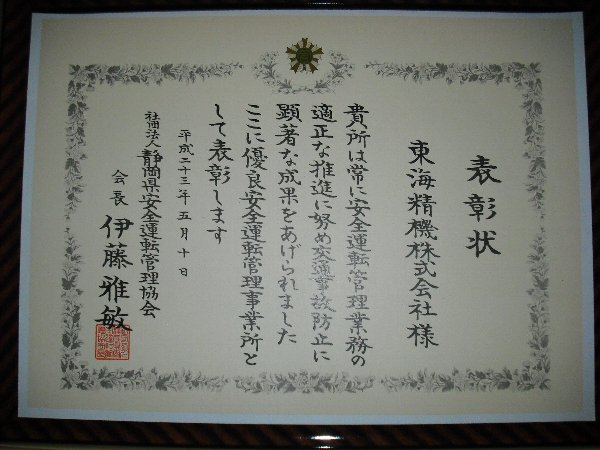 表彰状
東海精機株式会社様
貴所は常に安全運転管理業務の
適正な推進に努め交通事故防止に
顕著な成果をあげられました
ここに優良安全運転管理事業所と
して表彰します
平成二十三年五月十日
社団法人静岡県安全運転管理協会
会長 伊藤雅敏